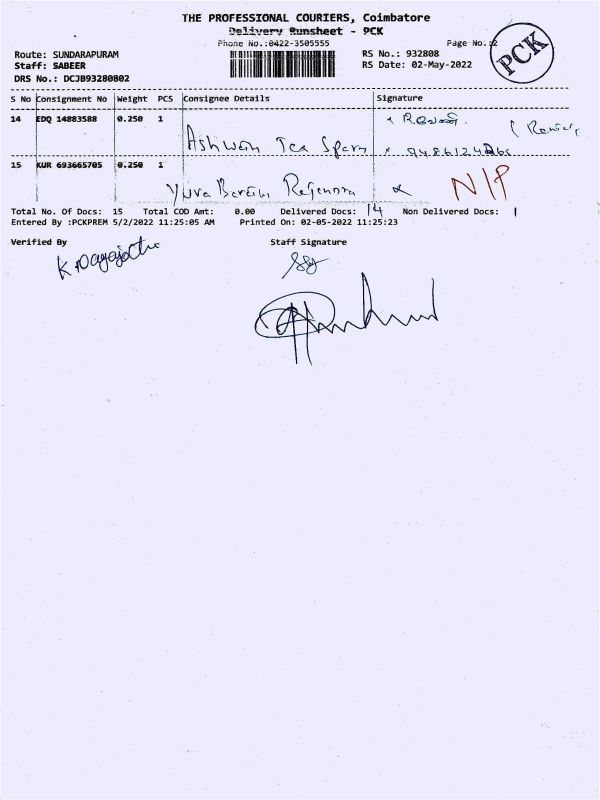 THE PROFESSIONAL COURIERS, Coimbatore
Delivery Runsheet - PCK
Phone No.:0422-3505555
Page No.:2
PCK
Route: SUNDARAPURAM
RS No.: 932808
Staff: SABEER
RS Date: 02-May-2022
DRS No.: DCJB93280802
S No Consignment No Weight PCS Consignee Details Signature
14 EDQ 14883588 0.250 1
Ashwin Tea
15 KUR 693665705 0.250 1
Yuva N/P
Total No. Of Docs: 15 Total COD Amt: 0.00 Delivered Docs: 14 Non Delivered Docs: 1
Entered By :PCKPREM 5/2/2022 11:25:05 AM Printed On: 02-05-2022 11:25:23
Verified By Staff Signature